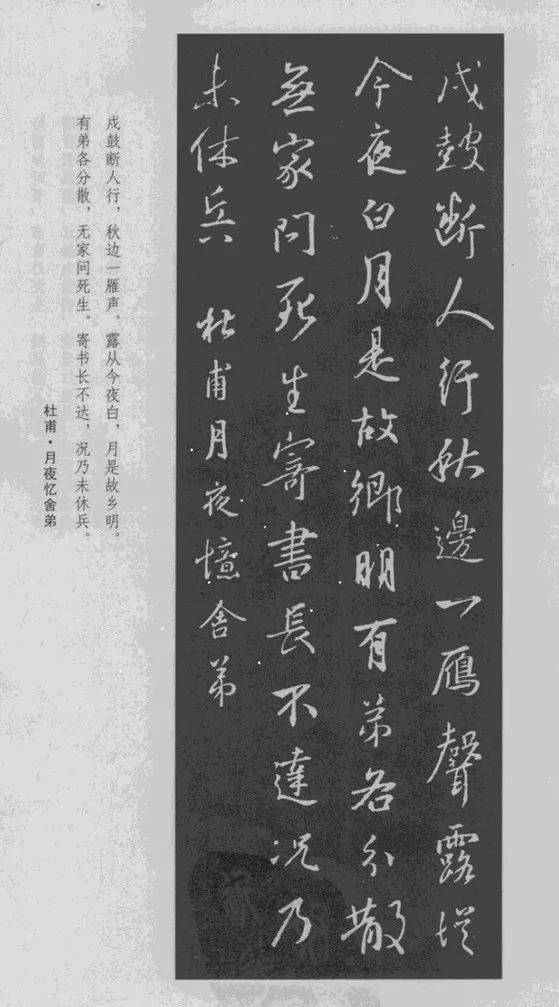 戍鼓断人行秋邊一鴈聲露從
今夜白月是故鄉明有弟各分散
無家問死生寄書長不達况乃
未休兵 杜甫月夜憶舍弟
戍鼓断人行，秋边一雁声。露从今夜白，月是故乡明。
有弟各分散，无家问死生。寄书长不达，况乃未休兵。
杜甫·月夜忆舍弟